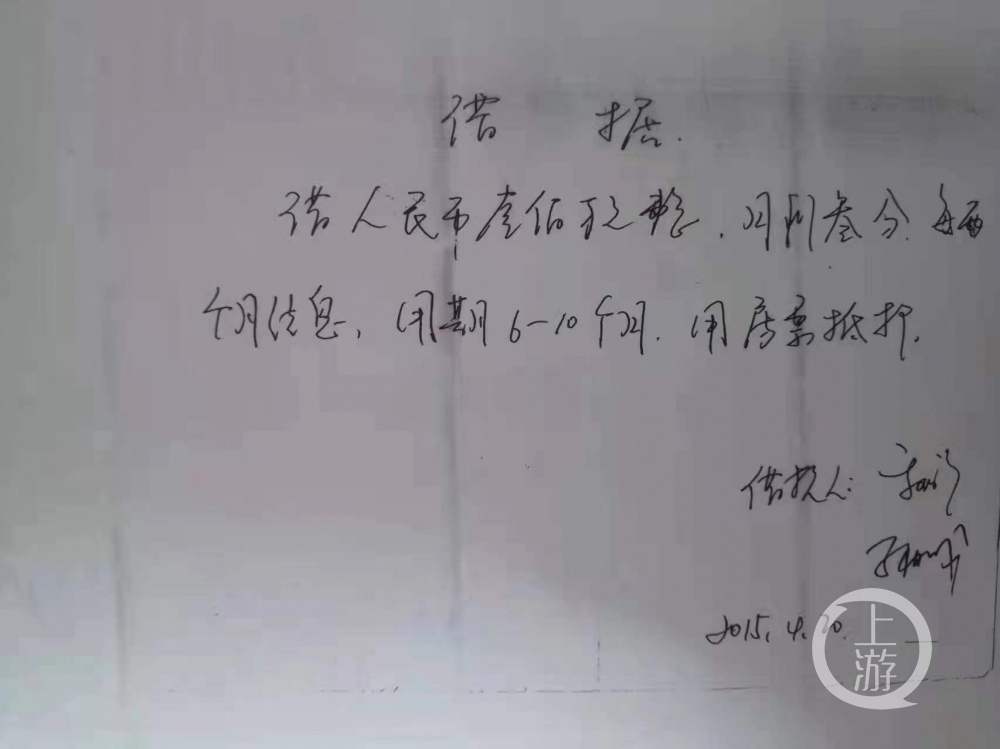 借 据.
借人民币壹佰万元整.月利叁分.每两
个月结息,用期6-10个月.用房票抵押.
借款人:
2015.4.20.
上游